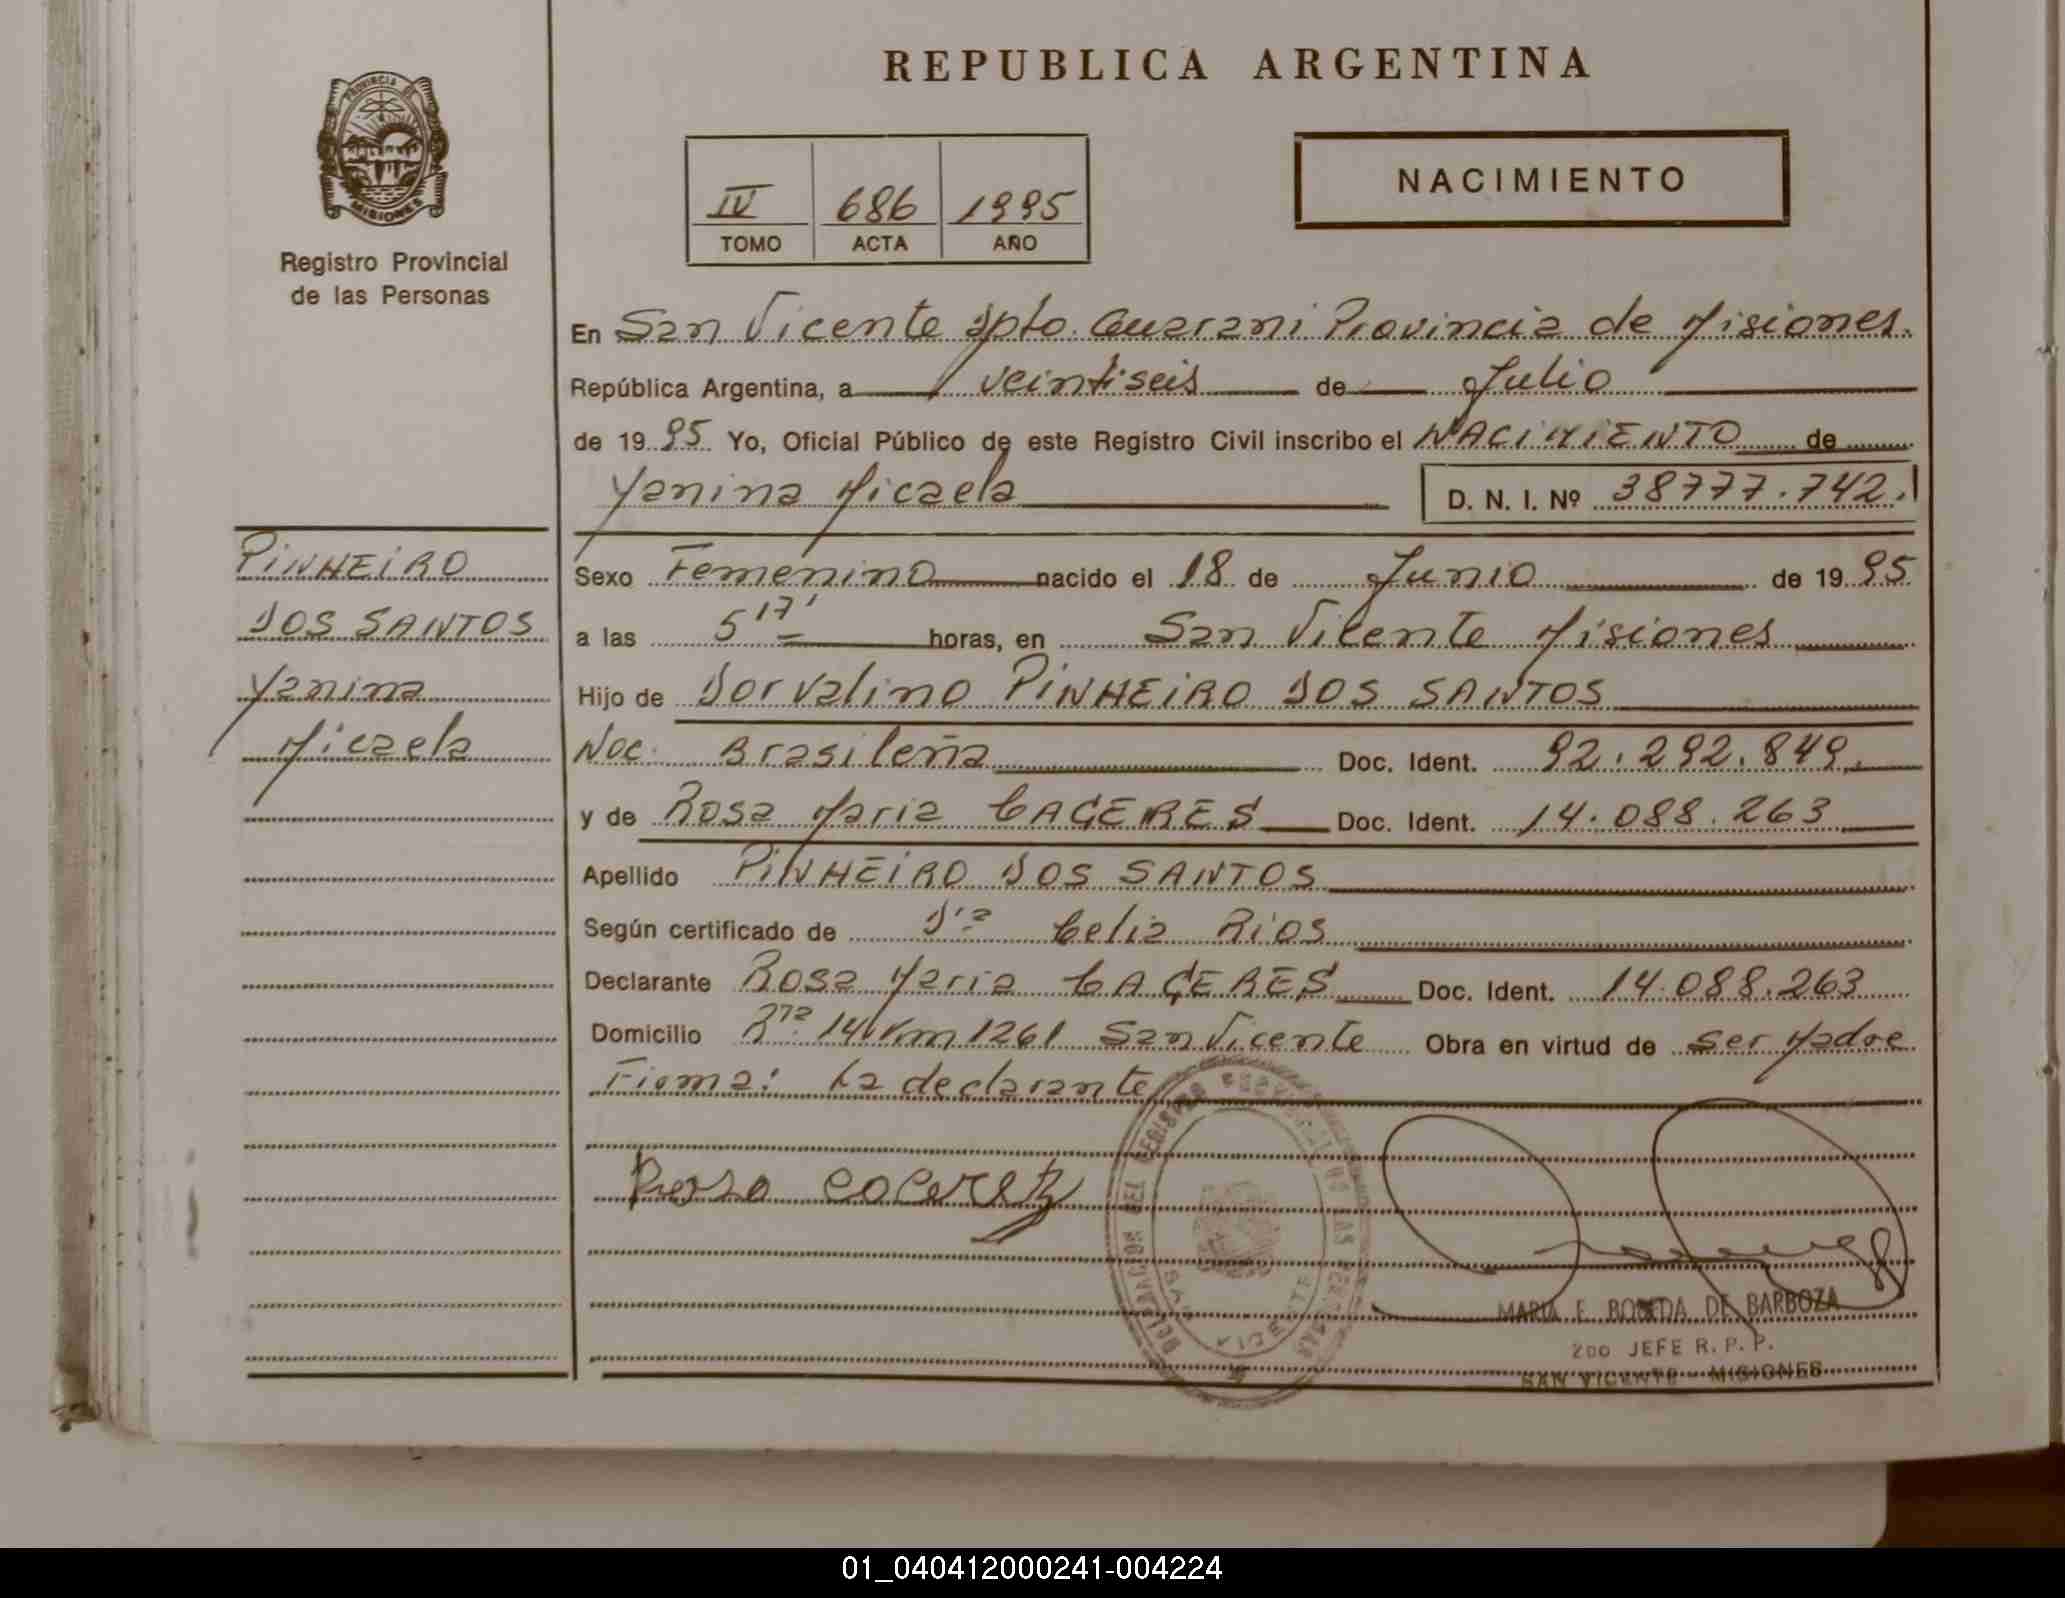 REPUBLICA ARGENTINA
PROVINCIA DE
MISIONES
Registro Provincial
de las Personas
NACIMIENTO
IV 686 1995
TOMO ACTA AÑO
En San Vicente Dpto. Guarani Provincia de Misiones.
República Argentina, a veintiseis de Julio
de 19 95 Yo, Oficial Público de este Registro Civil inscribo el NACIMIENTO de
Yanina Micaela D. N. I. Nº 38777.742.
PINHEIRO
DOS SANTOS
Yanina
Micaela
Sexo Femenino nacido el 18 de Junio de 19 95
a las 5 17' horas, en San Vicente Misiones
Hijo de Dorvalino PINHEIRO DOS SANTOS
Nac. Brasileña Doc. Ident. 92.292.849.
y de Rosa Maria CACERES Doc. Ident. 14.088.263
Apellido PINHEIRO DOS SANTOS
Según certificado de Dra Celia Rios
Declarante Rosa Maria CACERES Doc. Ident. 14.088.263
Domicilio Rta 14 Km 1261 San Vicente Obra en virtud de ser Madre
Firma: La declarante
Rosa
DELEGACION DEL REGISTRO PROVINCIAL DE LAS PERSONAS
SAN VICENTE
MARIA E. DE BARBOZA
2DO JEFE R. P. P.
SAN VICENTE - MISIONES
01_040412000241-004224